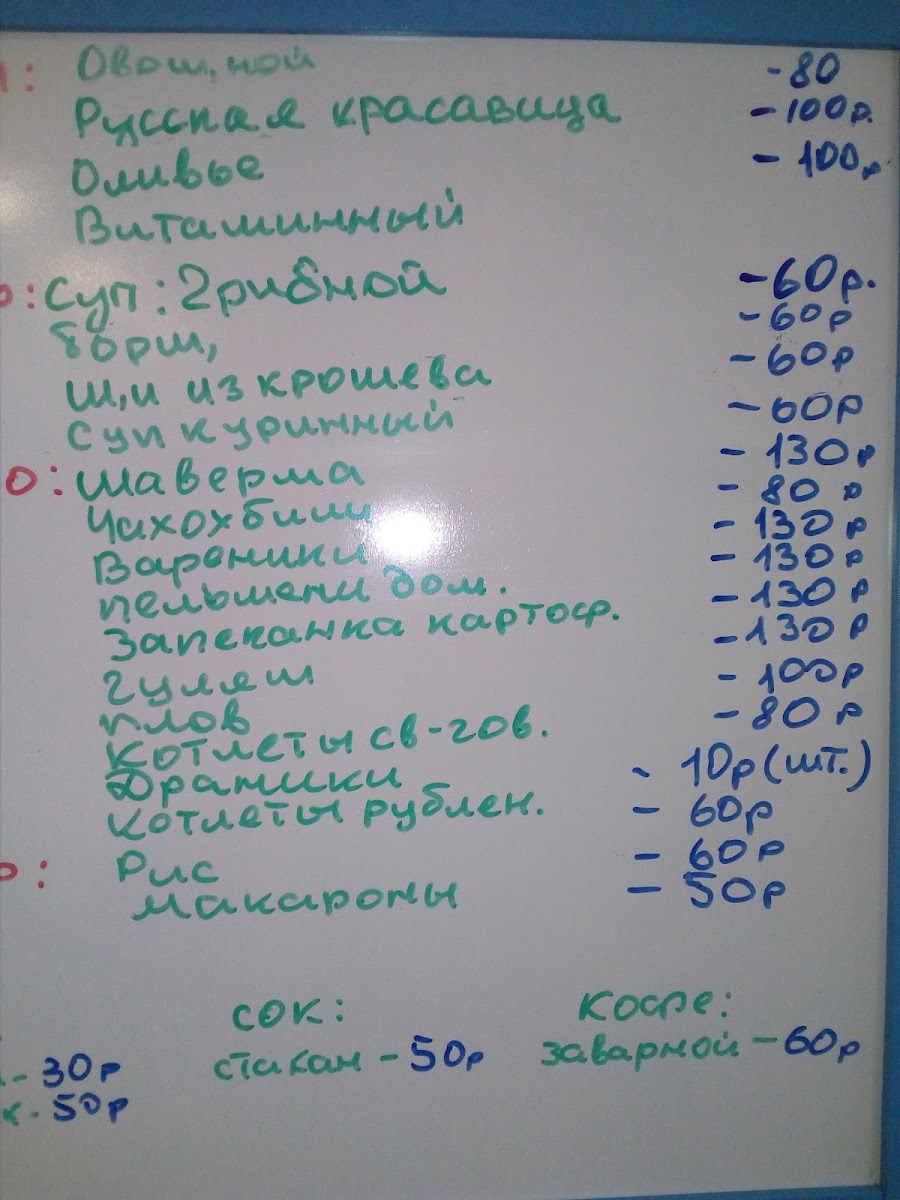 : Овощной -80
Русская красавица -100р.
Оливье - 100р
Витаминный
: Суп: Грибной -60р.
борщ -60р
Щи из крошева -60р
Суп куринный -60р
о: Шаверма - 130р
Чахохбили - 80р
Вареники -130р
пельмени дом. -130р
Запеканка картоф. -130р
гуляш -130р
плов - 100р
Котлеты св-гов. -80р
Драники - 10р(шт.)
Котлеты рублен. - 60р
: Рис - 60р
макароны - 50р
сок: Кофе:
- 30р стакан - 50р заварной - 60р
к - 50р